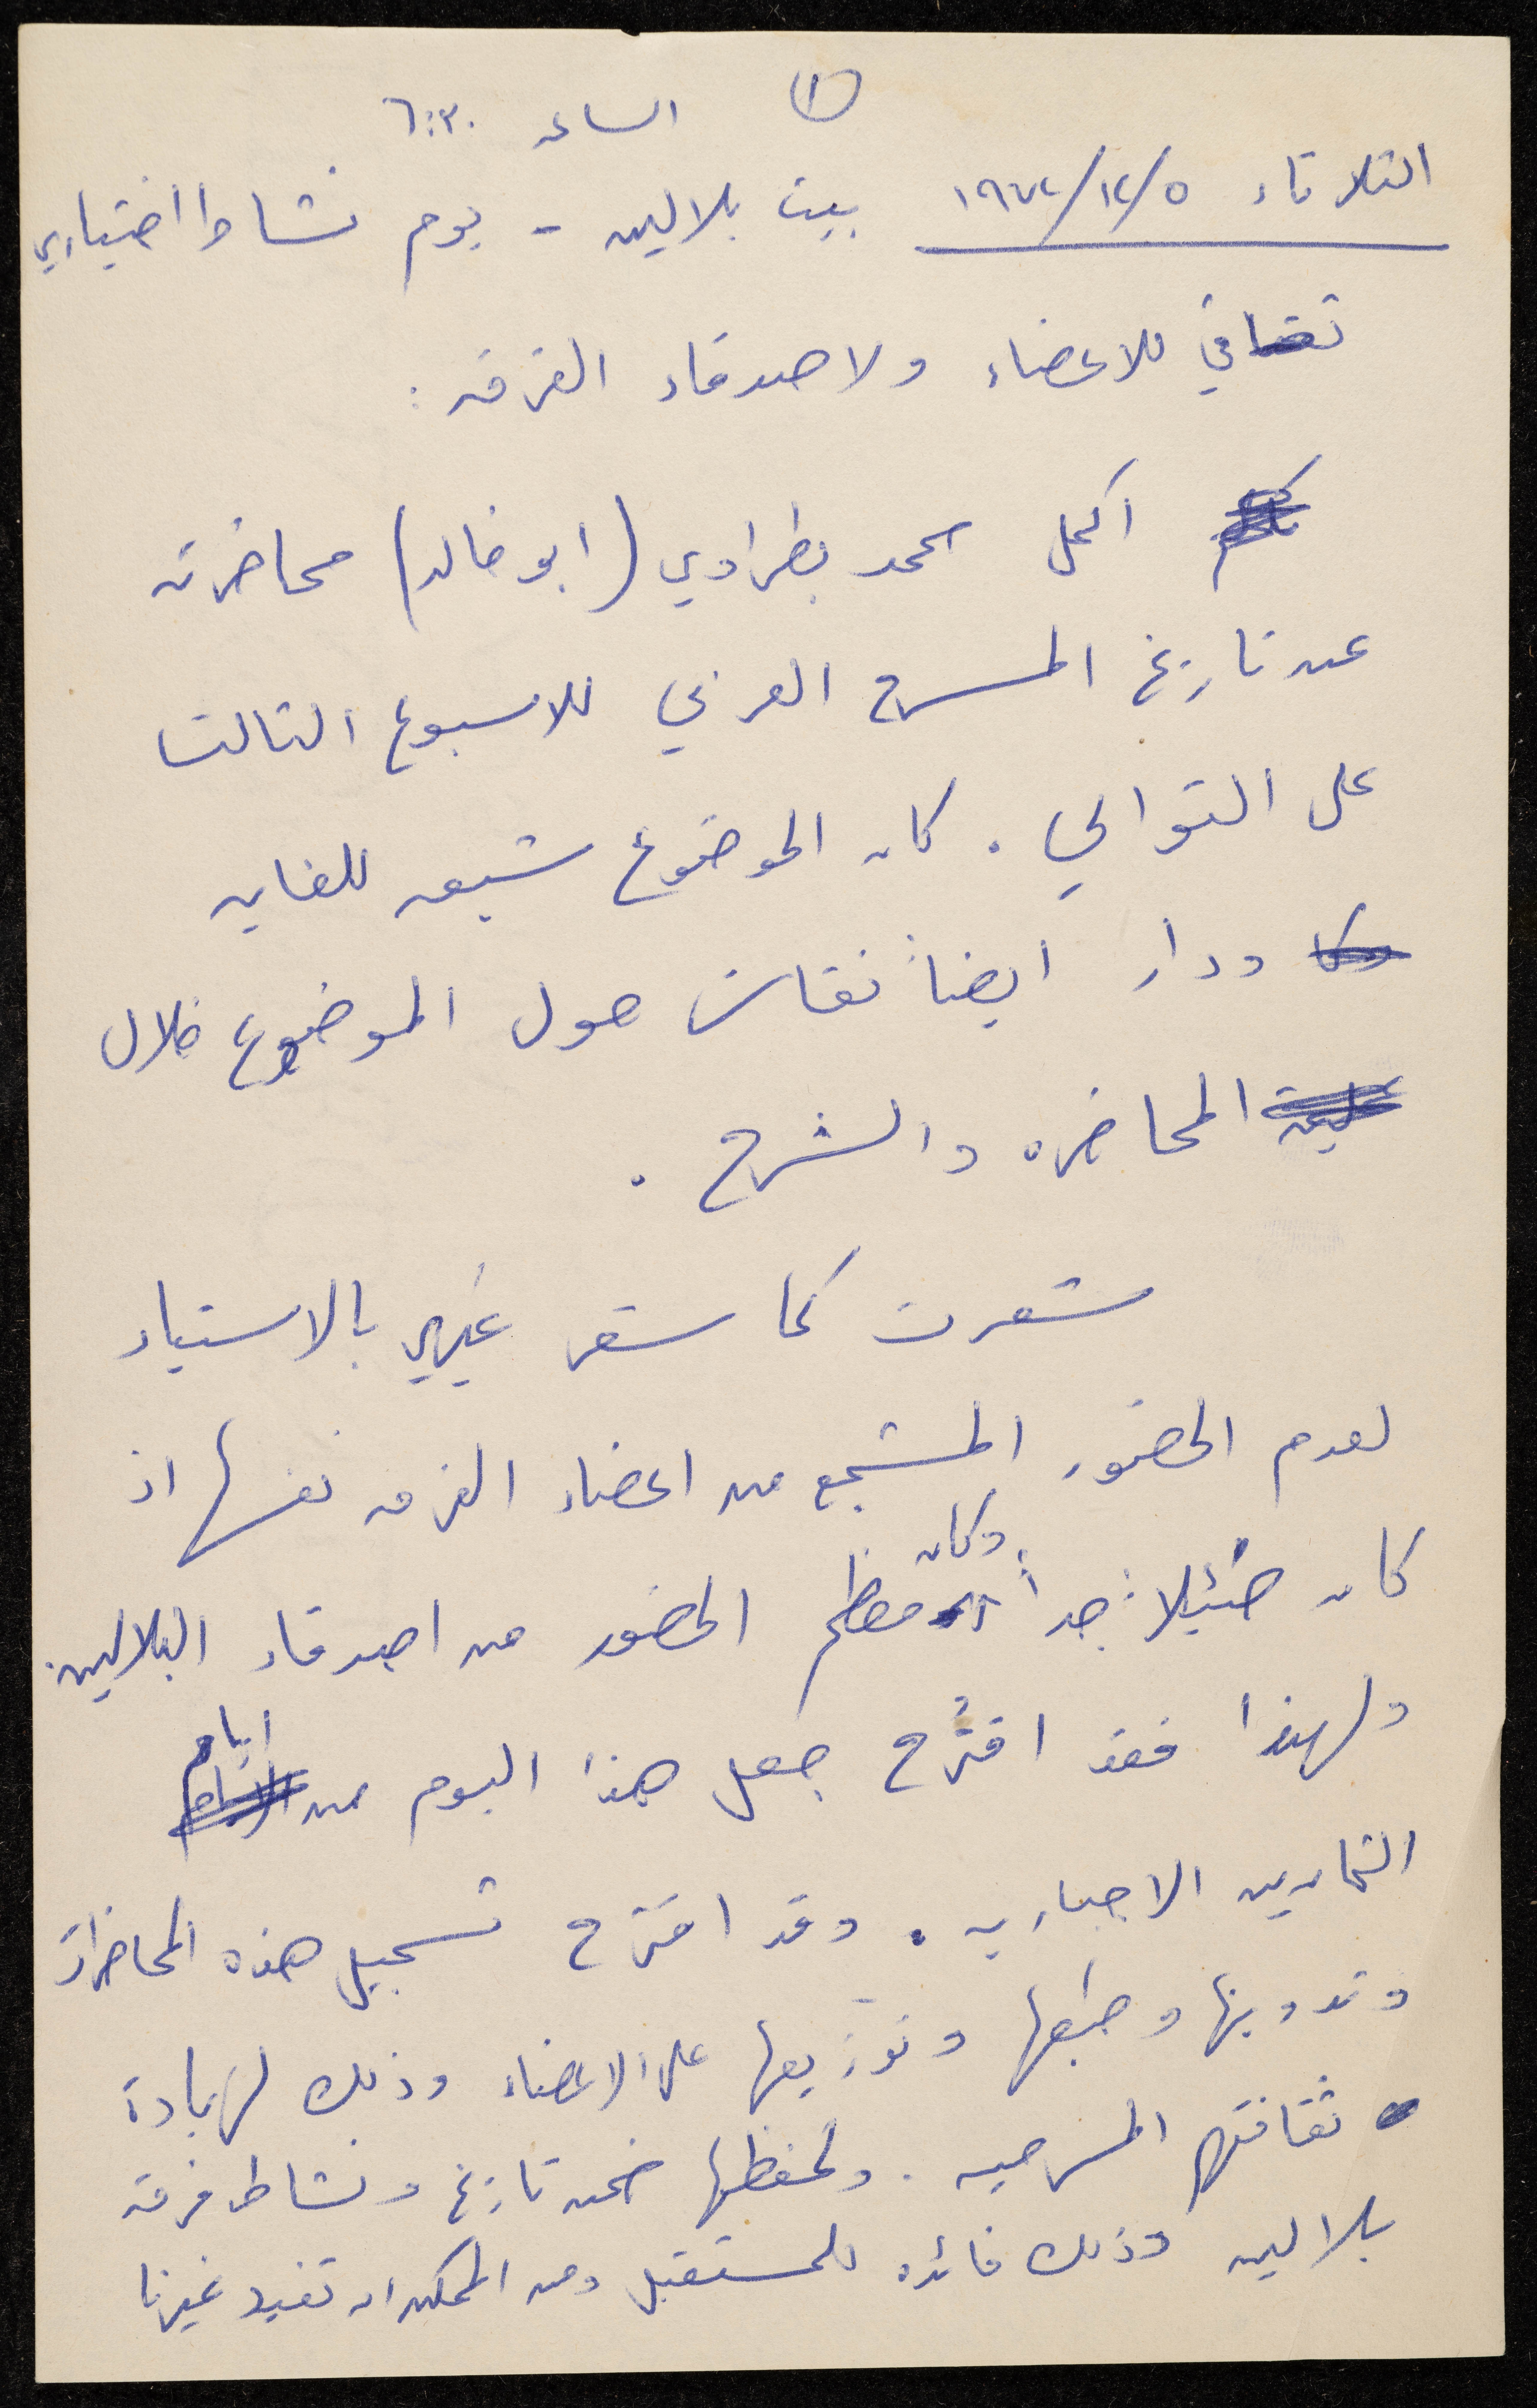 (١) الساعه ٦:٣٠
الثلاثاء ٥/١٢/١٩٧٢ بيت بلالين - يوم نشاط اختياري
ثقافي للاعضاء ولاصدقاء الفرقه:
اكمل محمد بطراوي (ابو خالد) محاضرته
عن تاريخ المسرح العربي للاسبوع الثالث
على التوالي. كان الموضوع شيق للغايه
ودار ايضاً نقاش حول الموضوع خلال
المحاضره والشرح.
شعرت كما شعر غيري بالاستياء
لعدم الحضور المشجع من اعضاء الفرقه نفسها اذ
كان ضئيلاً جداً وكان معظم الحضور من اصدقاء البلالين.
ولهذا فقد اقتُرح جعل هذا اليوم من ايام
التمارين الاجباريه. وقد اقترح تسجيل هذه المحاضرات
وتدوينها وطبعها وتوزيعها على الاعضاء وذلك لزيادة
ثقافتهم المسرحيه. ولحفظها ضمن تاريخ ونشاط فرقة
بلالين وذلك فائده للمستقبل ومن الممكن ان تفيد غيرنا